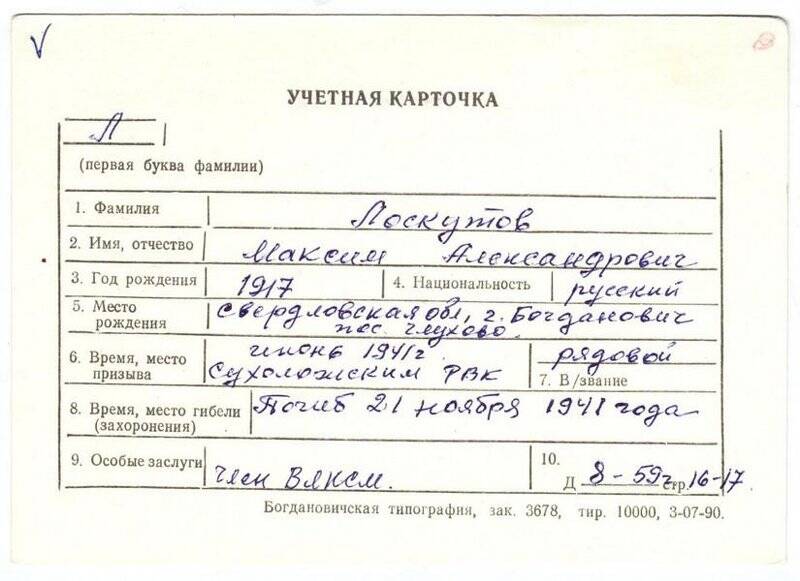 УЧЕТНАЯ КАРТОЧКА
Л
(первая буква фамилии)
1. Фамилия Лоскутов
2. Имя, отчество Максим Александрович
3. Год рождения 1917 4. Национальность русский
5. Место рождения Свердловская обл, г. Богданович
пос. Глухово.
6. Время, место призыва июнь 1941г.
Сухоложским РВК
рядовой
7. В/звание
8. Время, место гибели (захоронения) Погиб 21 ноября 1941 года
9. Особые заслуги член ВЛКСМ.
10.
Д 8-59г стр. 16-17.
Богдановичская типография, зак. 3678, тир. 10000, 3-07-90.